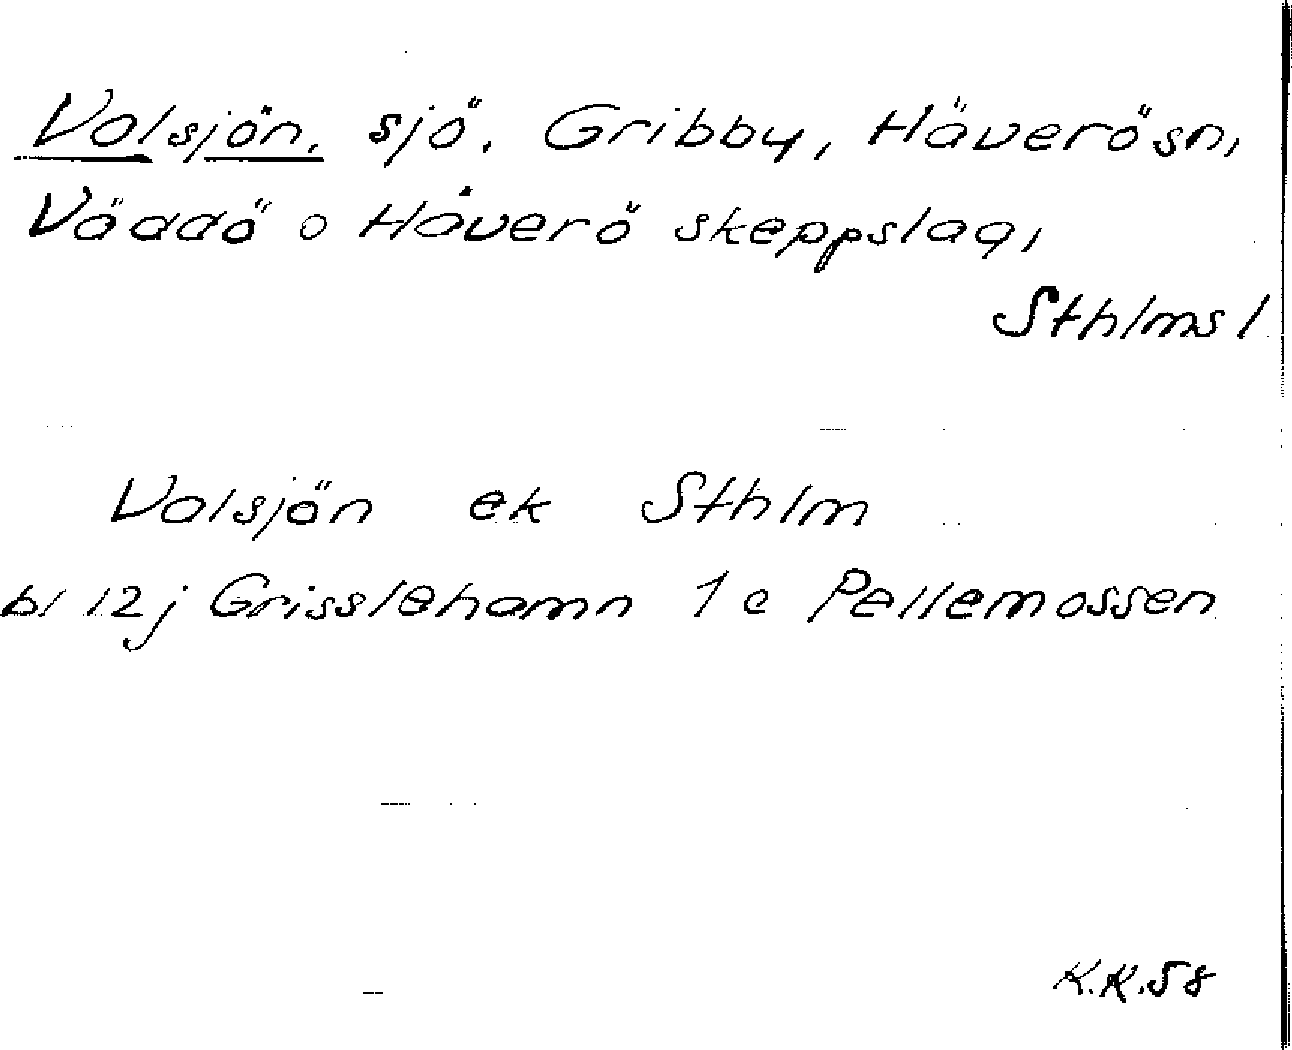 Valsjön, sjö, Gribby, Häverö sn,
Väddö o Häverö skeppslag,
Sthlms l
Valsjön ek Sthlm
bl 12j Grisslehamn 1c Pellemossen
K.R.58